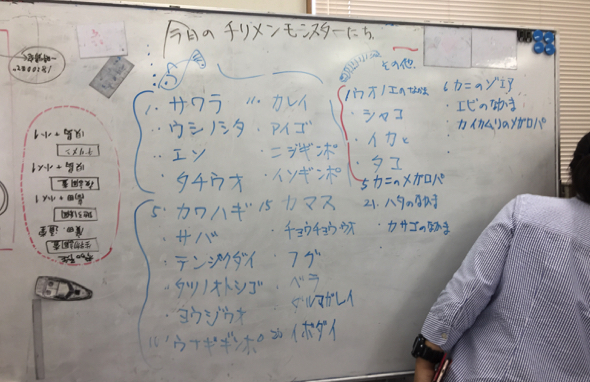 今日のチリメンモンスターたち
1. サワラ
・ウシノシタ
・エソ
・タチウオ
5. カワハギ
・サバ
・テンジクダイ
・タツノオトシゴ
・ヨウジウオ
・ウナギギンポ
11. カレイ
・アイゴ
・ニジギンポ
・イソギンポ
15 カマス
・チョウチョウウオ
・フグ
・ベラ
・ダルマガレイ
20 イボダイ
その他
1 ウオノエのなかま
・シャコ
・イカ
・タコ
5 カニのメガロパ
21. ハタのなかま
・カサゴのなかま
6 カニのゾエア
・エビのなかま
・カイカムリのメガロパ